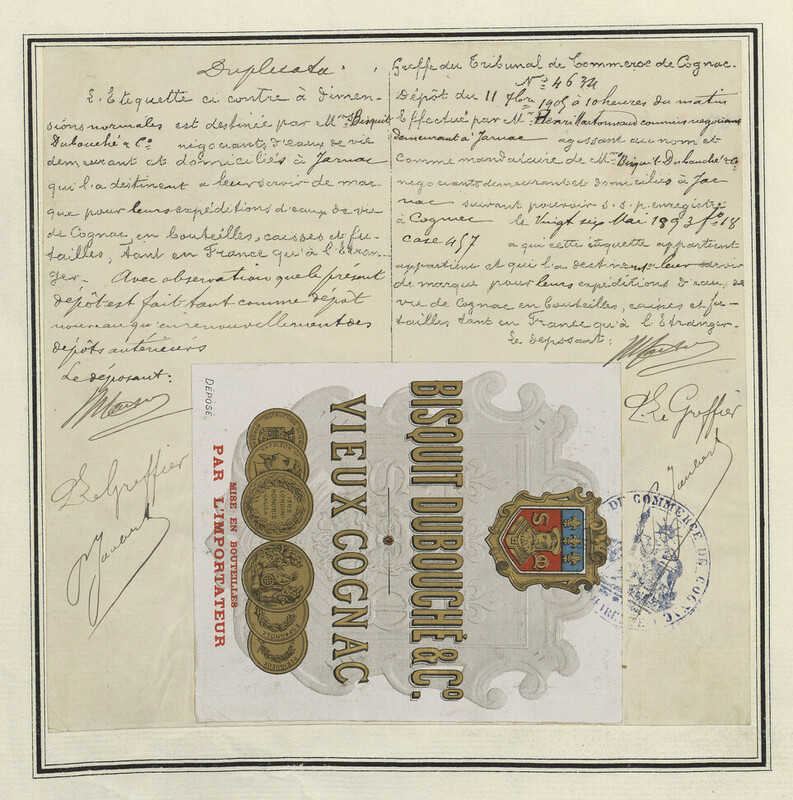 Duplicata.
L'Etiquette ci contre à dimen-
sions normales est destinée par Mrs Bisquit
Dubouché & Co négociants d'eaux de vie
demeurant et domiciliés à Jarnac
qui l'a destinent a leur servir de mar-
que pour leurs expéditions d'eaux de vie
de Cognac, en bouteilles, caisses et fu-
tailles, tant en France qu'à l'Etran-
ger. Avec observation que le présent
dépôt est fait tant comme dépôt
nouveau qu'en renouvellement des
dépôts antérieurs
Le déposant:
Le Greffier
Greffe du Tribunal de Commerce de Cognac.
No 4634
Dépôt du 11 7bre 1905 à 10 heures du matin
Effectué par Mr Henri commis negociant
demeurant à Jarnac agissant au nom et
comme mandataire de Mrs Bisquit Dubouché & Co
negociants demeurant et domiciliés à Jar
nac suivant pouvoir s.s.p. enregistré
à Cognac le vingt six Mai 1893 fo 18
case 457 a qui cette étiquette appartient
appartient et qui l'a destinent a leur servir
de marque pour leurs expéditions d'eaux de
vie de Cognac en bouteilles, caisses et fu-
tailles tant en France qu'à l'Etranger.
Le déposant:
Le Greffier
BISQUIT DUBOUCHÉ & Co.
VIEUX COGNAC
MISE EN BOUTEILLES
PAR L'IMPORTATEUR
DÉPOSÉ
1862
LONDINI
HONORIS
CAUSA
DE COMMERCE DE COGNAC